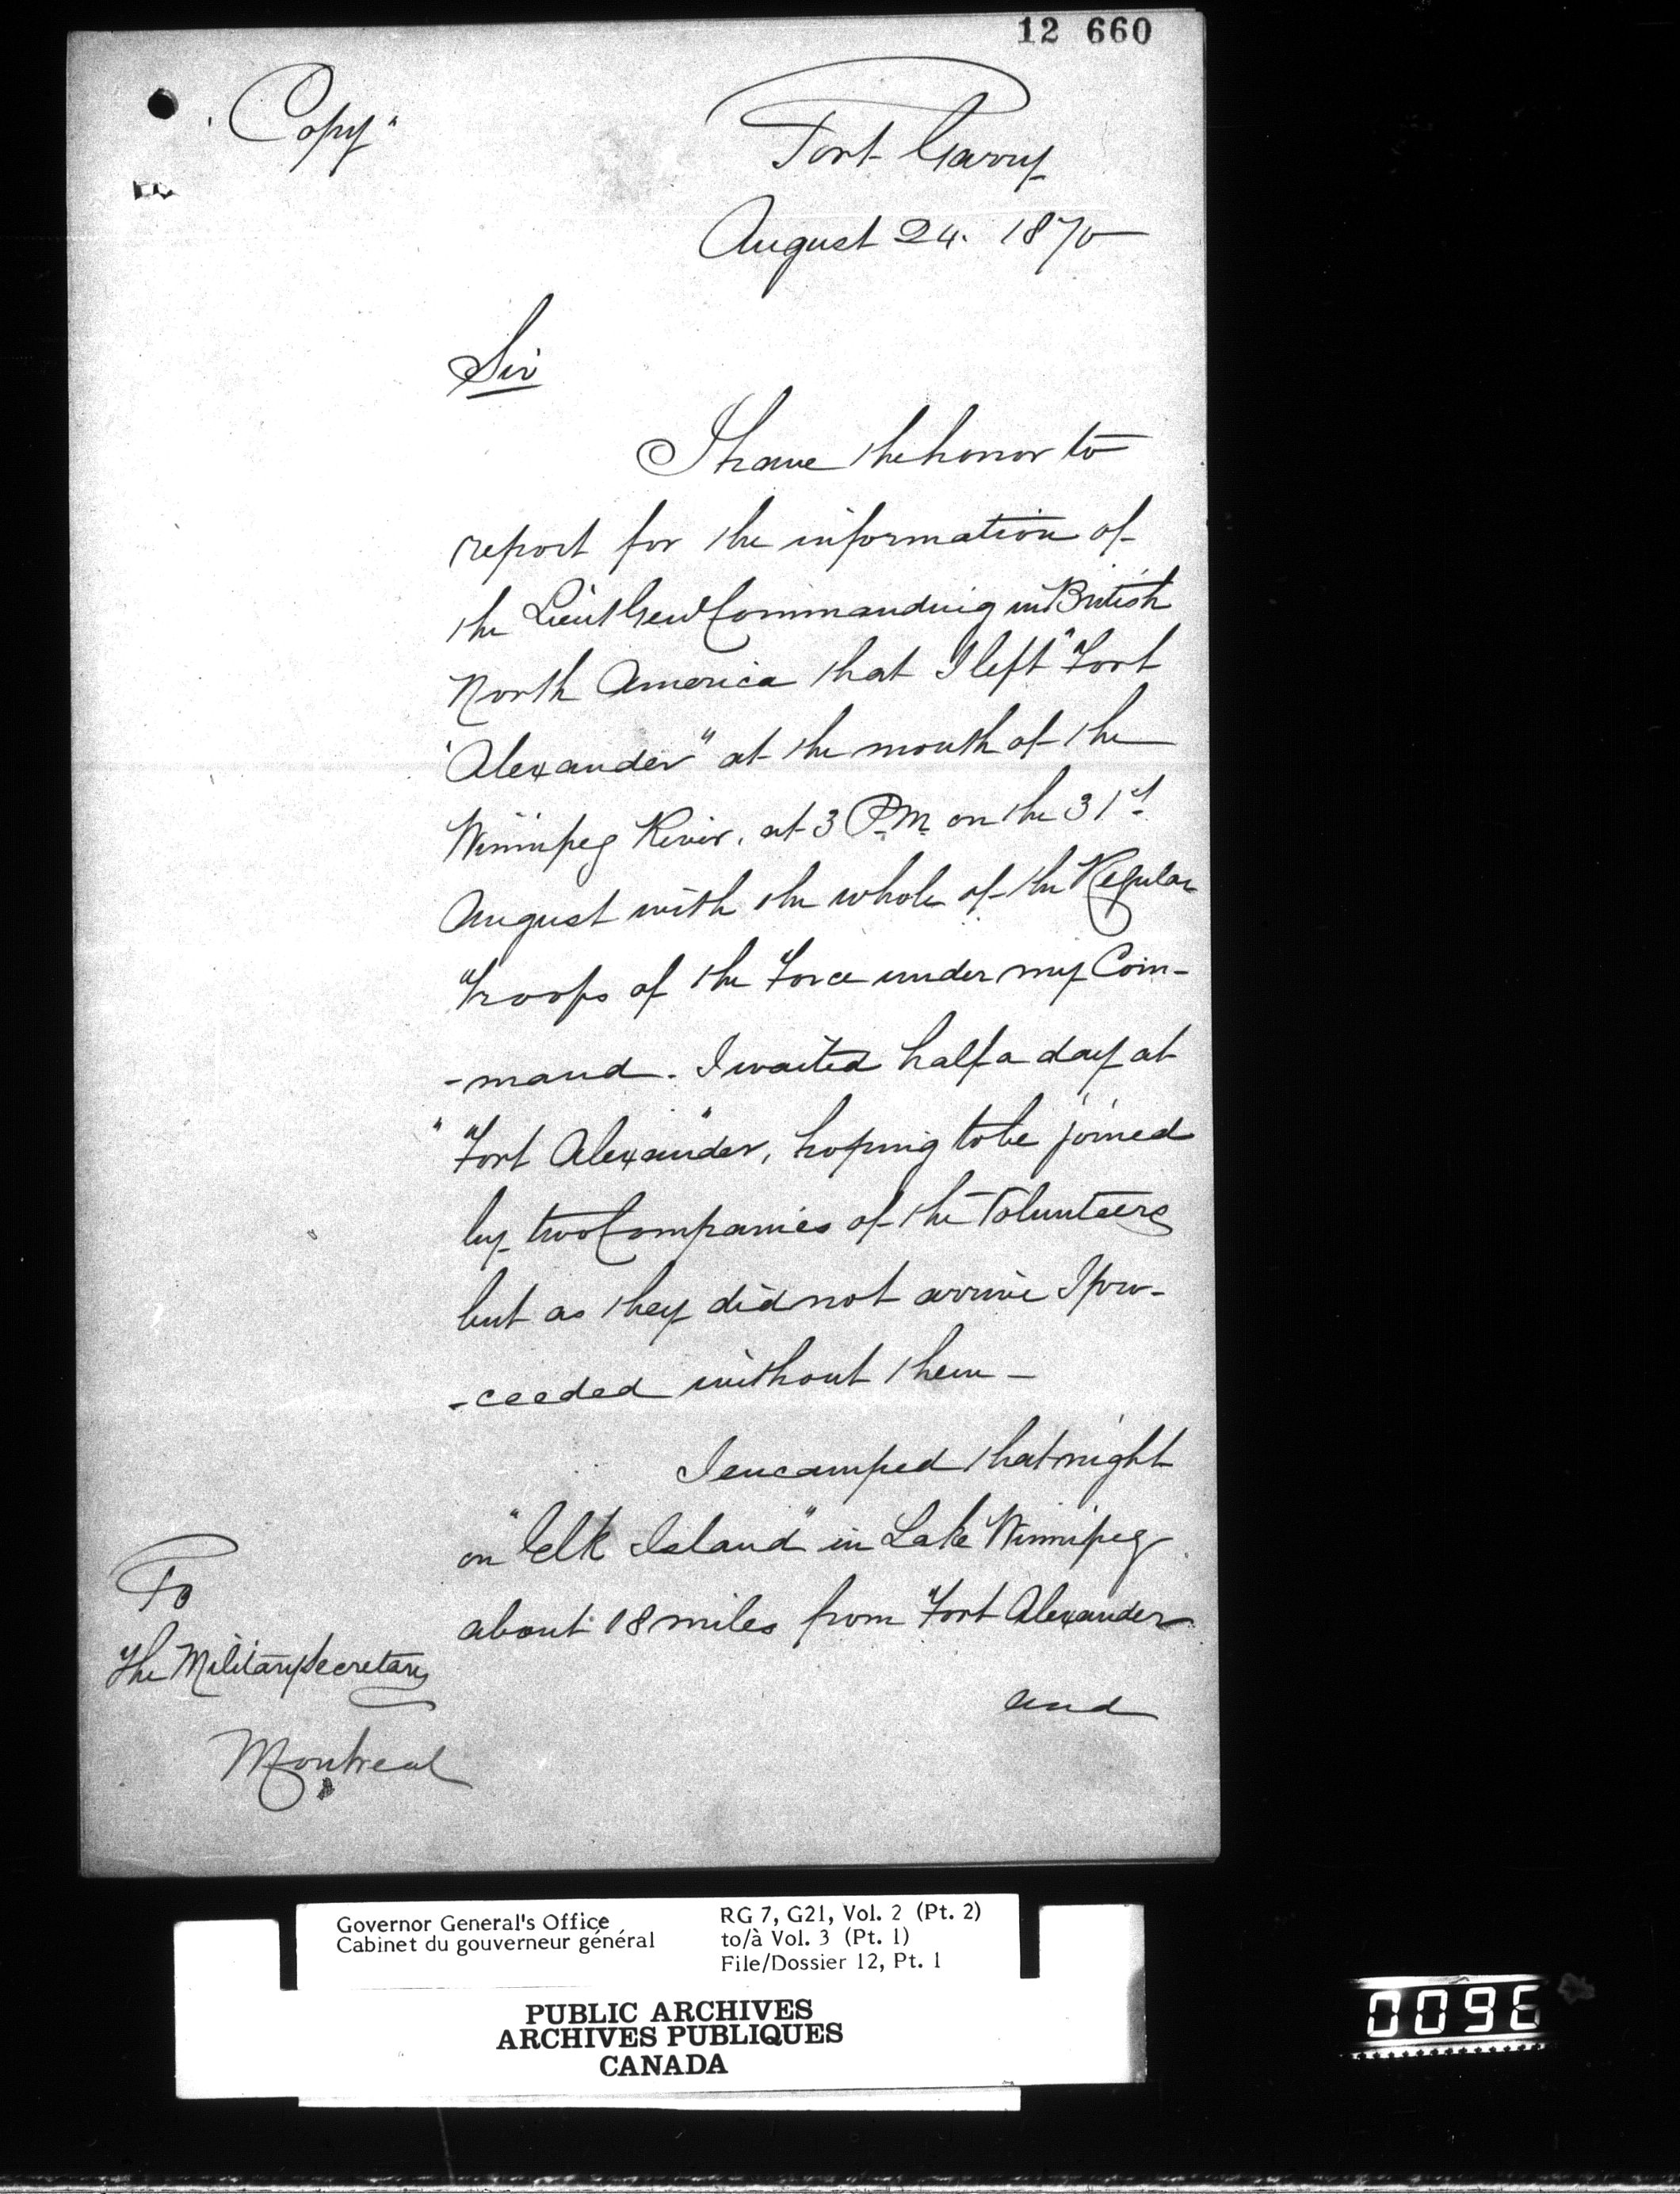 12 660
"Copy"
Fort Garry
August 24. 1870
Sir
I have the honor to
report for the information of
the Lieut Genl Commanding in British
North America that I left "Fort
"Alexander" at the mouth of the
Winnipeg River, at 3 P.M. on the 31st
August with the whole of the Regular
Troops of the Force under my Com-
-mand. I waited half a day at
"Fort Alexander", hoping to be joined
by two Companies of the Volunteers
but as they did not arrive I pro-
-ceeded without them -
I encamped that night
on "Elk Island" in Lake Winnipeg
about 18 miles from Fort Alexander
and
To
The Military Secretary
Montreal
Governor General's Office
Cabinet du gouverneur général
RG 7, G21, Vol. 2 (Pt. 2)
to/à Vol. 3 (Pt. 1)
File/Dossier 12, Pt. 1
PUBLIC ARCHIVES
ARCHIVES PUBLIQUES
CANADA